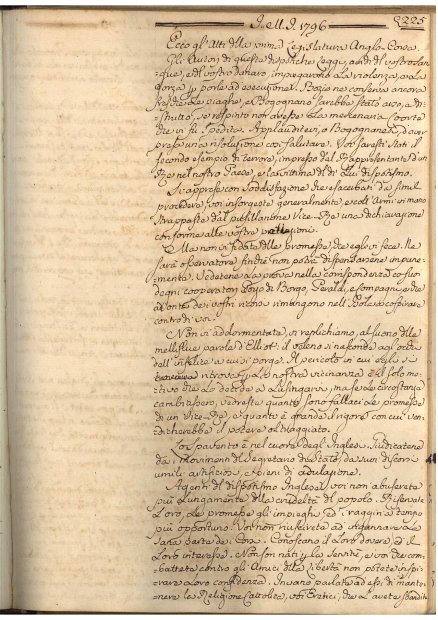 I. M. D. 1796 225
Ecco gl'Atti della prima Legislatura Anglo-Corsa.
Gli Autori di queste dispotiche Leggi, avidi del vostro san-
gue, e del vostro danaro, impiegarono la violenza, e la
forza per porle ad esecuzione. Bozio ne conserva ancora
fresche le piaghe, e Bogognano sarebbe stato arso, e di-
strutto, se respinto non avesse la mercenaria Coorte
che vi fu spedita. Applauditevi, o Bogognanesi, d'aver
preso una risoluzione così salutare. Voi sareste stati il
secondo esempio di terrore, impresso dal Rappresentante d'un
Re nel nostro Paese, e la vittima del di Lui dispotismo.
Si apprese con soddisfazione che esacerbati da simil
procedere, voi insorgeste generalmente, e coll'Armi in mano
strappaste dal pusillanime Vice-Re una dichiarazione
conforme alle vostre
Ma non vi fidate delle promesse, che egli vi fece. Ne
sarà osservatore finché non potrà dispensarsene impune-
mente. Vedetene la prova nella corrispondenza co' suoi
degni cooperatori Pozzo di Borgo, Peraldi, e compagni, che
ad onta dei vostri ricorsi rimangono nell'Isola a cospirare
contro di voi.
Non vi addormentate, vi replichiamo, al suono delle
melliflue parole d'Elliot: il veleno si nasconde agl'occhi
dell'infelice a cui si porge. Il pericolo in cui egli si
ritrova per la nostra vicinanza è il solo mo-
tivo che lo decide a lusingarvi, ma se le circostanze
cambiassero, vedreste quanto sono fallaci le promesse
di un Vice-Re, e quanto è grande il rigore con cui ven-
dicherebbe il potere oltraggiato.
Lo spavento è nel cuore degl'Inglesi. Giudicatene
da i movimenti del Segretario di Stato, da suoi discorsi
umili, artificiosi, e pieni di adulazione.
Agenti del dispotismo Inglese! voi non abuserete
più lungamente della credulità del popolo. Riservate
loro, le promesse, gli impieghi, ed i raggiri a tempo
più opportuno. Voi non riuscirete ad ingannare la
sana parte dei Corsi. Conoscano il loro dovere, ed il
loro interesse. Non son nati per servire, e voi che com-
battete contro gli Amici della libertà non potete inspi-
rare loro confidenza. Invano parlate ad essi di mante-
nere la Religione Cattolica, voi Eretici, che l'avete sbandita